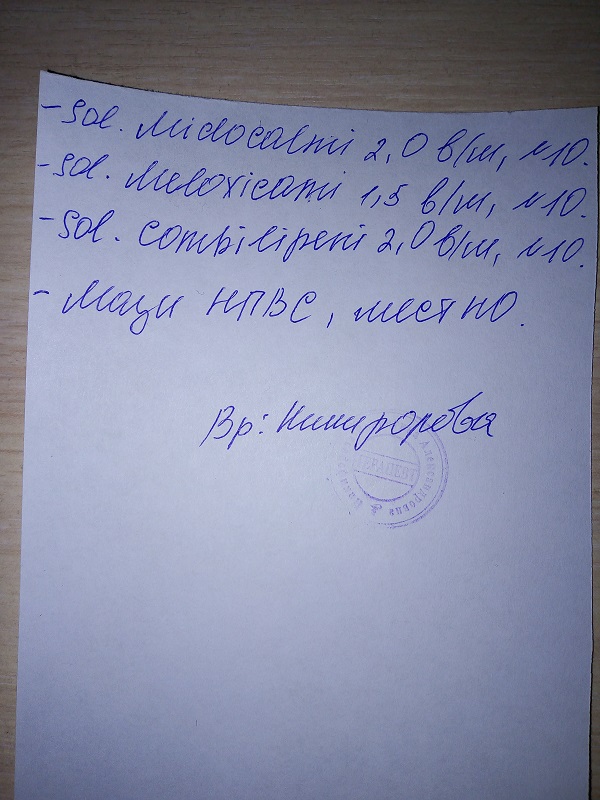 - Sol. Midocalmi 2,0 в/м, N10.
- Sol. Meloxicami 1,5 в/м, N10.
- Sol. Combilipeni 2,0 в/м, N10.
- Мази НПВС, местно.
Вр:
Александровна